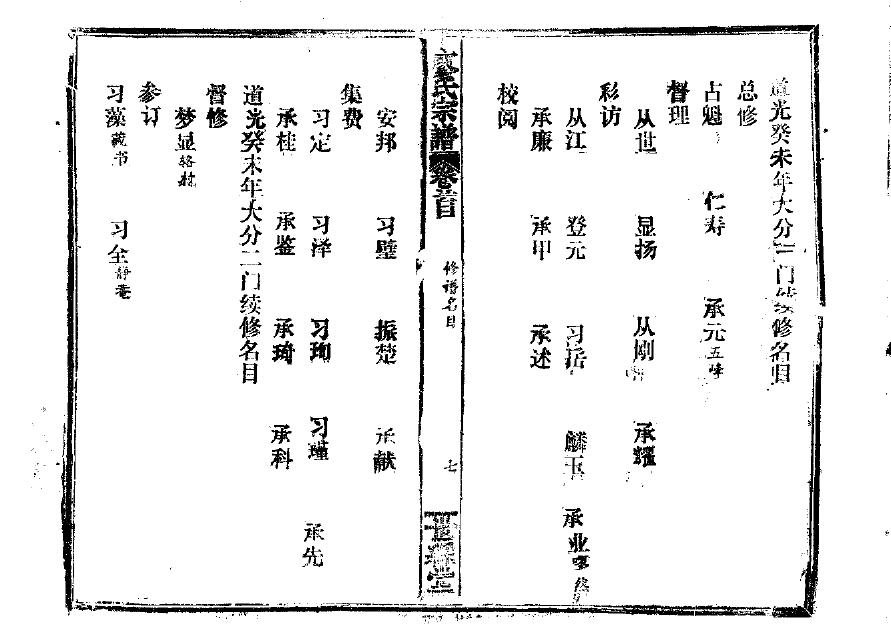 道光癸未年大分三门续修名目
总修
占魁 仁寿 承元五峰
督理
从世 显扬 从刚 承耀
彩访
从江 登元 习岳 麟玉 承业
承廉 承甲 承述
校阅
氏宗谱 卷首目 修谱名目 七
安邦 习璧 振楚 承献
集费
习定 习泽 习珣 习瑾 承先
承桂 承鉴 承琦 承科
道光癸未年大分二门续修名目
督修
梦显
参订
习藻藏书 习全静菴